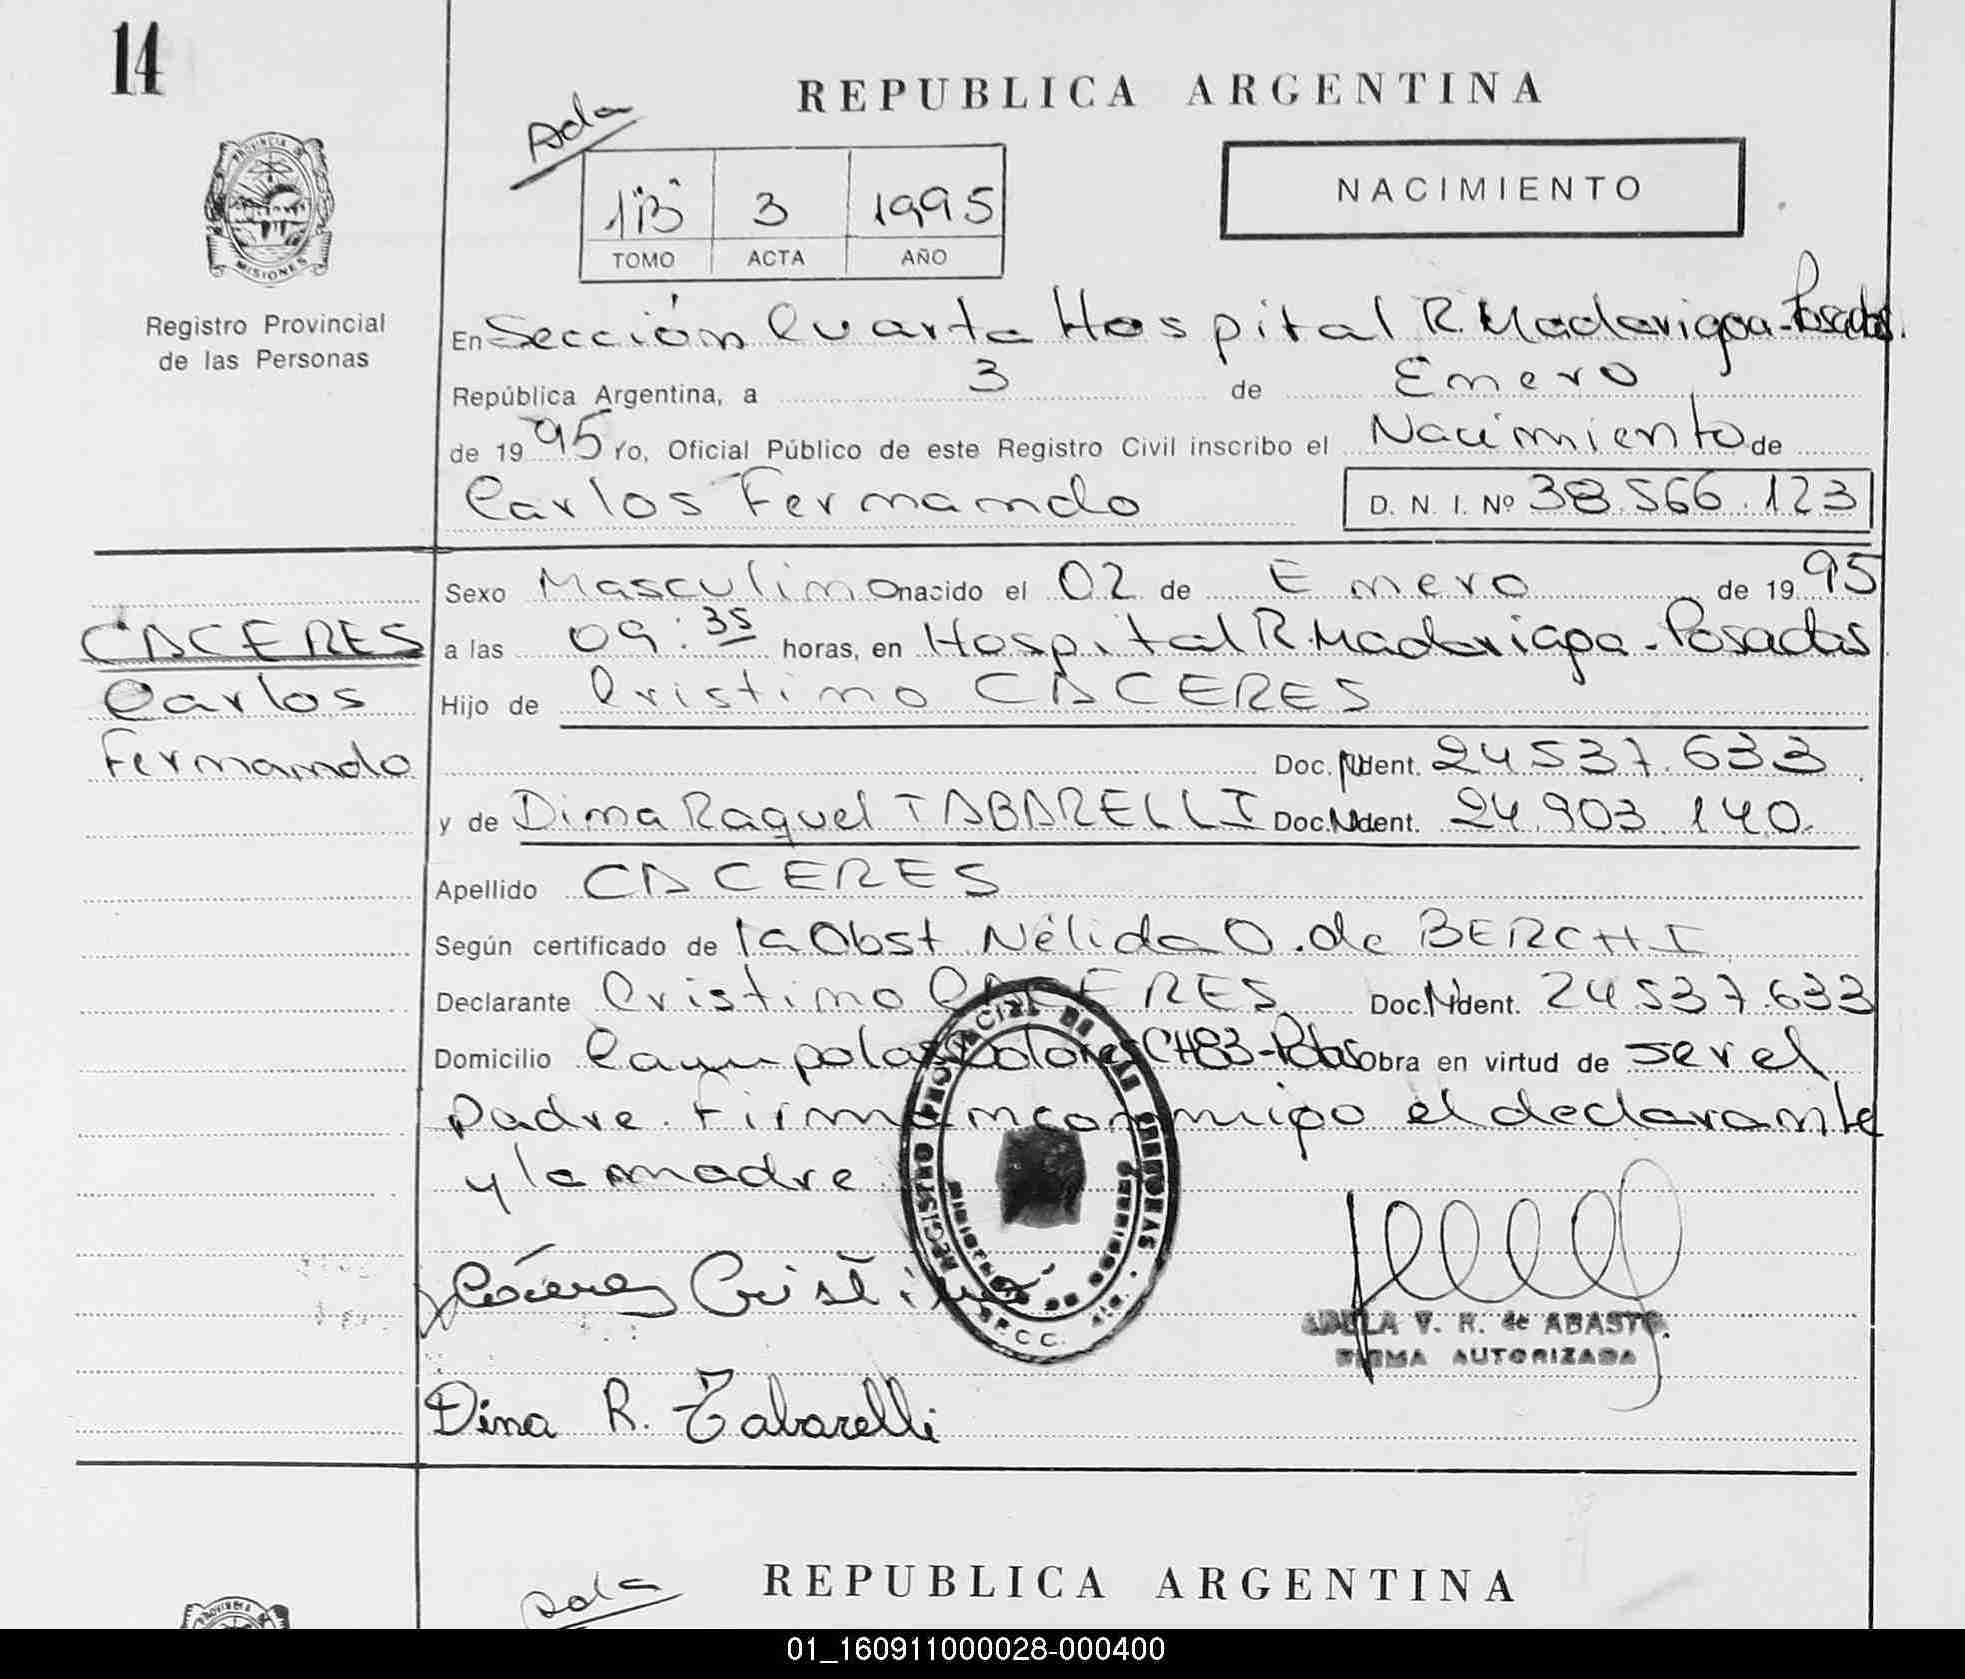 14
REPUBLICA ARGENTINA
Ada
1"B" 3 1995
TOMO ACTA AÑO
NACIMIENTO
PROVINCIA DE
MISIONES
Registro Provincial
de las Personas
En Sección Cuarta Hospital R. Madariaga - Posadas.
República Argentina, a 3 de Enero
de 1995 Yo, Oficial Público de este Registro Civil inscribo el Nacimiento de
Carlos Fernando D. N. I. Nº 38.566.123
Sexo Masculino nacido el 02 de Enero de 1995
CACERES
a las 09:35 horas, en Hospital R. Madariaga - Posadas
Carlos
Hijo de Cristino CACERES
Fernando
Doc. Ident. 24.537.633
y de Dina Raquel TABARELLI Doc. Ident. 24.903.140.
Apellido CACERES
Según certificado de la Obst. Nélida O. de BERCHI
Declarante Cristino CACERES Doc. Ident. 24.537.633
Domicilio Dolores CH83 - Pdas Obra en virtud de ser el
padre. Firman conmigo el declarante
y la madre
REGISTRO PROVINCIAL DE LAS PERSONAS
Cáceres Cristino
ADELA V. R. de ABASTO
FIRMA AUTORIZADA
Dina R. Tabarelli
REPUBLICA ARGENTINA
Ada
PROVINCIA DE
01_160911000028-000400